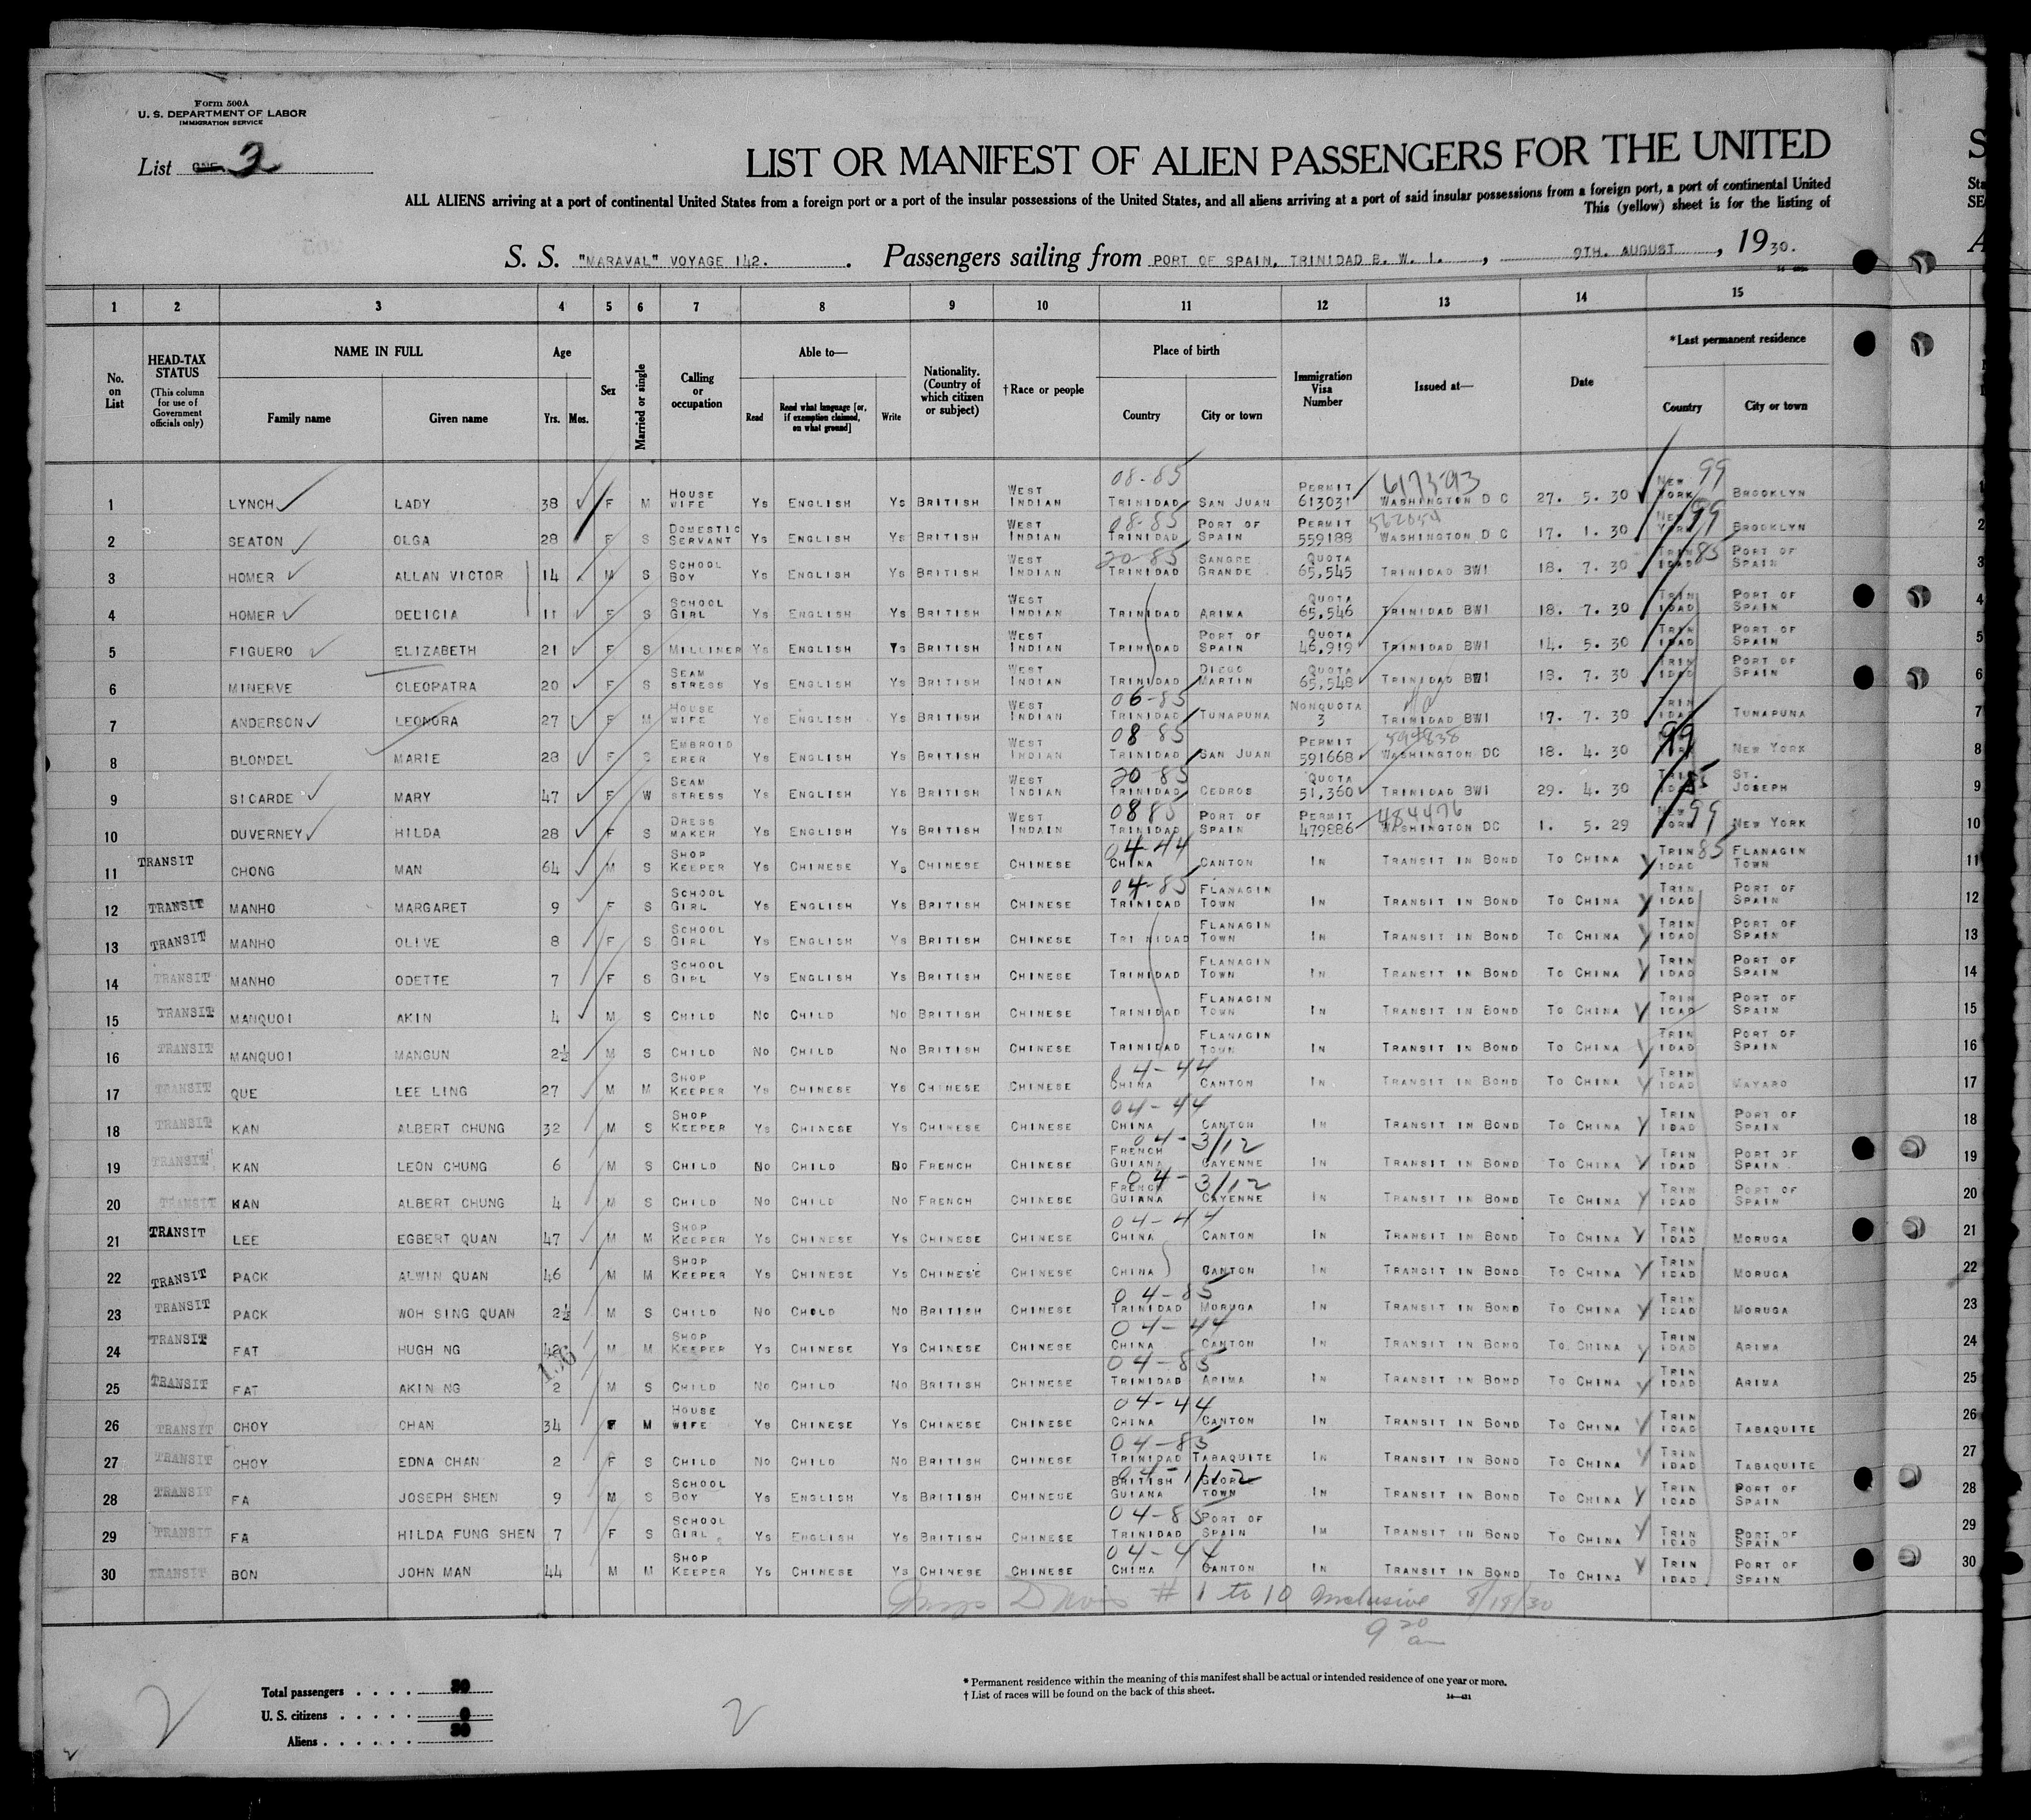 Form 500A
U. S. DEPARTMENT OF LABOR
IMMIGRATION SERVICE
List ONE 3
LIST OR MANIFEST OF ALIEN PASSENGERS FOR THE UNITED
ALL ALIENS arriving at a port of continental United States from a foreign port or a port of the insular possessions of the United States, and all aliens arriving at a port of said insular possessions from a foreign port, a port of continental United
This (yellow) sheet is for the listing of
S. S. "MARAVAL" VOYAGE 142. Passengers sailing from PORT OF SPAIN, TRINIDAD B. W. I., 9TH. AUGUST, 1930.
1 2 3 4 5 6 7 8 9 10 11 12 13 14 15
No. on List
HEAD-TAX STATUS (This column for use of Government officials only)
NAME IN FULL Family name Given name
Age Yrs. Mos.
Sex
Married or single
Calling or occupation
Able to— Read Read what language [or, if exemption claimed, on what ground] Write
Nationality. (Country of which citizen or subject)
† Race or people
Place of birth Country City or town
Immigration Visa Number
Issued at—
Date
* Last permanent residence Country City or town
1 LYNCH LADY 38 F M HOUSE WIFE YS ENGLISH YS BRITISH WEST INDIAN 08-85 TRINIDAD SAN JUAN PERMIT 613031 617393 WASHINGTON D C 27. 5. 30 NEW YORK 99 BROOKLYN 1
2 SEATON OLGA 28 F S DOMESTIC SERVANT YS ENGLISH YS BRITISH WEST INDIAN 08-85 TRINIDAD PORT OF SPAIN PERMIT 559188 562054 WASHINGTON D C 17. 1. 30 NEW YORK 99 BROOKLYN 2
3 HOMER ALLAN VICTOR 14 M S SCHOOL BOY YS ENGLISH YS BRITISH WEST INDIAN 20-85 TRINIDAD SANGRE GRANDE QUOTA 65,545 TRINIDAD BWI 18. 7. 30 TRINIDAD 85 PORT OF SPAIN 3
4 HOMER DELICIA 11 F S SCHOOL GIRL YS ENGLISH YS BRITISH WEST INDIAN TRINIDAD ARIMA QUOTA 65,546 TRINIDAD BWI 18. 7. 30 TRINIDAD PORT OF SPAIN 4
5 FIGUERO ELIZABETH 21 F S MILLINER YS ENGLISH YS BRITISH WEST INDIAN TRINIDAD PORT OF SPAIN QUOTA 46,919 TRINIDAD BWI 14. 5. 30 TRINIDAD PORT OF SPAIN 5
6 MINERVE CLEOPATRA 20 F S SEAM STRESS YS ENGLISH YS BRITISH WEST INDIAN TRINIDAD DIEGO MARTIN QUOTA 65,548 TRINIDAD BWI 18. 7. 30 TRINIDAD PORT OF SPAIN 6
7 ANDERSON LEONORA 27 F M HOUSE WIFE YS ENGLISH YS BRITISH WEST INDIAN 06-85 TRINIDAD TUNAPUNA NONQUOTA 3 TRINIDAD BWI 17. 7. 30 TRINIDAD TUNAPUNA 7
8 BLONDEL MARIE 28 F S EMBROID ERER YS ENGLISH YS BRITISH WEST INDIAN 08 85 TRINIDAD SAN JUAN PERMIT 591668 594838 WASHINGTON DC 18. 4. 30 99 NEW YORK 8
9 SICARDE MARY 47 F W SEAM STRESS YS ENGLISH YS BRITISH WEST INDIAN 20 85 TRINIDAD CEDROS QUOTA 51,360 TRINIDAD BWI 29. 4. 30 TRINIDAD 85 ST. JOSEPH 9
10 DUVERNEY HILDA 28 F S DRESS MAKER YS ENGLISH YS BRITISH WEST INDAIN 08 85 TRINIDAD PORT OF SPAIN PERMIT 479886 484476 WASHINGTON DC 1. 5. 29 NEW YORK 99 NEW YORK 10
11 TRANSIT CHONG MAN 64 M S SHOP KEEPER YS CHINESE YS CHINESE CHINESE 04-44 CHINA CANTON IN TRANSIT IN BOND TO CHINA TRINIDAD 85 FLANAGIN TOWN 11
12 TRANSIT MANHO MARGARET 9 F S SCHOOL GIRL YS ENGLISH YS BRITISH CHINESE 04-85 TRINIDAD FLANAGIN TOWN IN TRANSIT IN BOND TO CHINA TRINIDAD PORT OF SPAIN 12
13 TRANSIT MANHO OLIVE 8 F S SCHOOL GIRL YS ENGLISH YS BRITISH CHINESE TRINIDAD FLANAGIN TOWN IN TRANSIT IN BOND TO CHINA TRINIDAD PORT OF SPAIN 13
14 TRANSIT MANHO ODETTE 7 F S SCHOOL GIRL YS ENGLISH YS BRITISH CHINESE TRINIDAD FLANAGIN TOWN IN TRANSIT IN BOND TO CHINA TRINIDAD PORT OF SPAIN 14
15 TRANSIT MANQUOI AKIN 4 M S CHILD NO CHILD NO BRITISH CHINESE TRINIDAD FLANAGIN TOWN IN TRANSIT IN BOND TO CHINA TRINIDAD PORT OF SPAIN 15
16 TRANSIT MANQUOI MANGUN 2½ M S CHILD NO CHILD NO BRITISH CHINESE TRINIDAD FLANAGIN TOWN IN TRANSIT IN BOND TO CHINA TRINIDAD PORT OF SPAIN 16
17 TRANSIT QUE LEE LING 27 M M SHOP KEEPER YS CHINESE YS CHINESE CHINESE 04-44 CHINA CANTON IN TRANSIT IN BOND TO CHINA TRINIDAD MAYARO 17
18 TRANSIT KAN ALBERT CHUNG 32 M S SHOP KEEPER YS CHINESE YS CHINESE CHINESE 04-44 CHINA CANTON IN TRANSIT IN BOND TO CHINA TRINIDAD PORT OF SPAIN 18
19 TRANSIT KAN LEON CHUNG 6 M S CHILD NO CHILD NO FRENCH CHINESE 04-3/12 FRENCH GUIANA CAYENNE IN TRANSIT IN BOND TO CHINA TRINIDAD PORT OF SPAIN 19
20 TRANSIT KAN ALBERT CHUNG 4 M S CHILD NO CHILD NO FRENCH CHINESE 04-3/12 FRENCH GUIANA CAYENNE IN TRANSIT IN BOND TO CHINA TRINIDAD PORT OF SPAIN 20
21 TRANSIT LEE EGBERT QUAN 47 M M SHOP KEEPER YS CHINESE YS CHINESE CHINESE 04-44 CHINA CANTON IN TRANSIT IN BOND TO CHINA TRINIDAD MORUGA 21
22 TRANSIT PACK ALWIN QUAN 46 M M SHOP KEEPER YS CHINESE YS CHINESE CHINESE CHINA CANTON IN TRANSIT IN BOND TO CHINA TRINIDAD MORUGA 22
23 TRANSIT PACK WOH SING QUAN 2½ M S CHILD NO CHOLD NO BRITISH CHINESE 04-85 TRINIDAD MORUGA IN TRANSIT IN BOND TO CHINA TRINIDAD MORUGA 23
24 TRANSIT FAT HUGH NG 42 M M SHOP KEEPER YS CHINESE YS CHINESE CHINESE 04-44 CHINA CANTON IN TRANSIT IN BOND TO CHINA TRINIDAD ARIMA 24
25 TRANSIT FAT AKIN NG 2 M S CHILD NO CHILD NO BRITISH CHINESE 04-85 TRINIDAD ARIMA IN TRANSIT IN BOND TO CHINA TRINIDAD ARIMA 25
26 TRANSIT CHOY CHAN 34 F M HOUSE WIFE YS CHINESE YS CHINESE CHINESE 04-44 CHINA CANTON IN TRANSIT IN BOND TO CHINA TRINIDAD TABAQUITE 26
27 TRANSIT CHOY EDNA CHAN 2 F S CHILD NO CHILD NO BRITISH CHINESE 04-85 TRINIDAD TABAQUITE IN TRANSIT IN BOND TO CHINA TRINIDAD TABAQUITE 27
28 TRANSIT FA JOSEPH SHEN 9 M S SCHOOL BOY YS ENGLISH YS BRITISH CHINESE 04-1/12 BRITISH GUIANA GEORGE TOWN IN TRANSIT IN BOND TO CHINA TRINIDAD PORT OF SPAIN 28
29 TRANSIT FA HILDA FUNG SHEN 7 F S SCHOOL GIRL YS ENGLISH YS BRITISH CHINESE 04-85 TRINIDAD PORT OF SPAIN IM TRANSIT IN BOND TO CHINA TRINIDAD PORT OF SPAIN 29
30 TRANSIT BON JOHN MAN 44 M M SHOP KEEPER YS CHINESE YS CHINESE CHINESE 04-44 CHINA CANTON IN TRANSIT IN BOND TO CHINA TRINIDAD PORT OF SPAIN 30
# 1 to 10 Inclusive 8/18/30
9 20 am
* Permanent residence within the meaning of this manifest shall be actual or intended residence of one year or more.
† List of races will be found on the back of this sheet.
Total passengers . . . . 30
U. S. citizens . . . . . . 0
Aliens . . . . . . 30
2 2